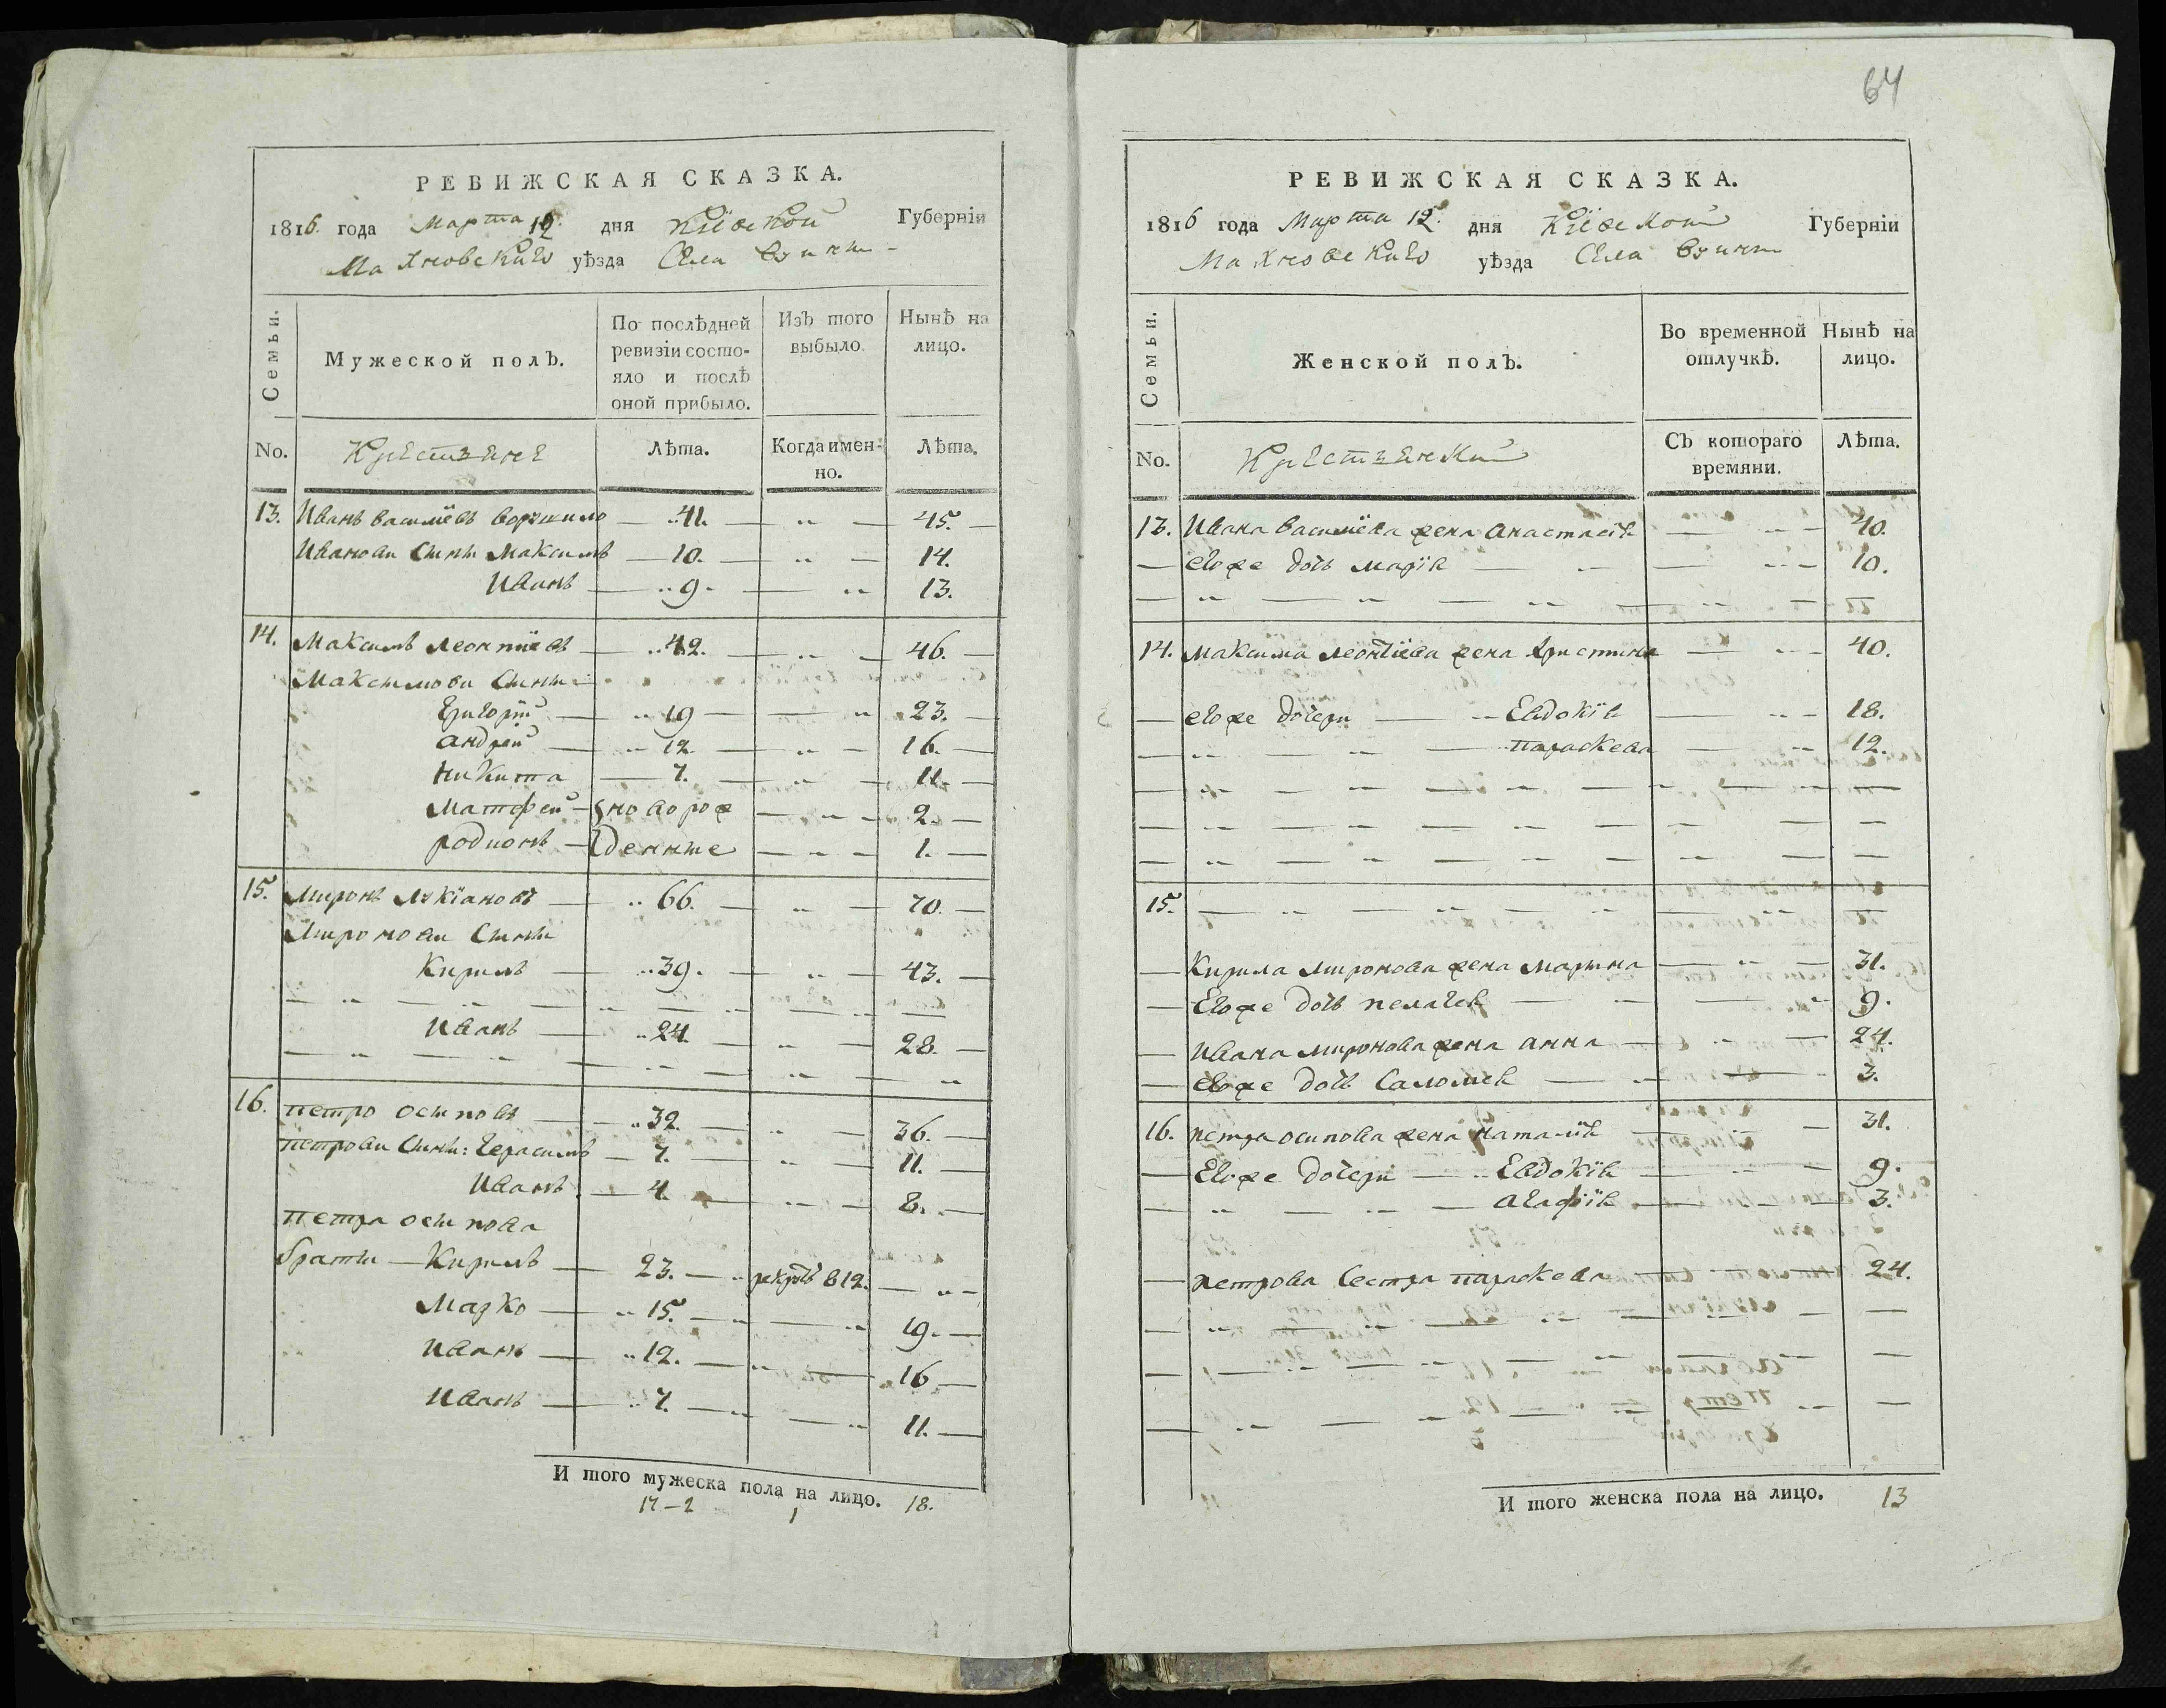 РЕВИЖСКАЯ СКАЗКА.
1816. года Марта 12. дня Кіевской Губерніи
Махновскаго уѣзда Села
Семьи.
Мужеской полъ.
По послѣдней ревизіи состояло и послѣ оной прибыло.
Изъ того выбыло.
Нынѣ на лицо.
No. Крестьяне Лѣта. Когда именно. Лѣта.
13. Иванъ Василіевъ — 41. — 45.
Иванови Сыны Максимъ — 10. — 14.
Иванъ — 9. — 13.
14. Максимъ Леонтіевъ — 42. — 46.
Максимови Сыны
Григорій — 19 — 23.
Андрей — 12. — 16.
Никита — 7. — 11.
Матфей — новорож — 2.
Родионъ — денные — 1.
15. Миронъ Лукіановъ — 66. — 70.
Миронови Сыны
Кирилъ — 39. — 43.
Иванъ — 24. — 28.
16. Петро Осиповъ — 32. — 36.
Петрови Сыны: Герасимъ — 7. — 11.
Иванъ — 4. — 8.
Петра Осипова
браты — Кирилъ — 23. — рекрутъ 812.
Марко — 15. — 19.
Иванъ — 12. — 16
Иванъ — 7. — 11.
И того мужеска пола на лицо. 18.
17-2 1
64
РЕВИЖСКАЯ СКАЗКА.
1816 года Марта 12. дня Кіевской Губерніи
Махновскаго уѣзда Села
Семьи.
Женской полъ.
Во временной отлучкѣ.
Нынѣ на лицо.
No. Крестьянки Съ котораго времяни. Лѣта.
13. Ивана Василіева жена Анастасія — 40.
— егоже дочь Марія — 10.
14. Максима Леонтіева жена Христина — 40.
— егоже дочери — Евдокія — 18.
Параскева — 12.
15.
— Кирила Миронова жена Марина — 31.
— Егоже дочь Пелагея — 9.
— Ивана Миронова жена Анна — 24.
— егоже дочь Саломея — 3.
16. Петра Осипова жена Наталія — 31.
— Егоже дочери — Евдокія — 9.
Агафія — 3.
— Петрова Сестра Параскева — 24.
И того женска пола на лицо. 13